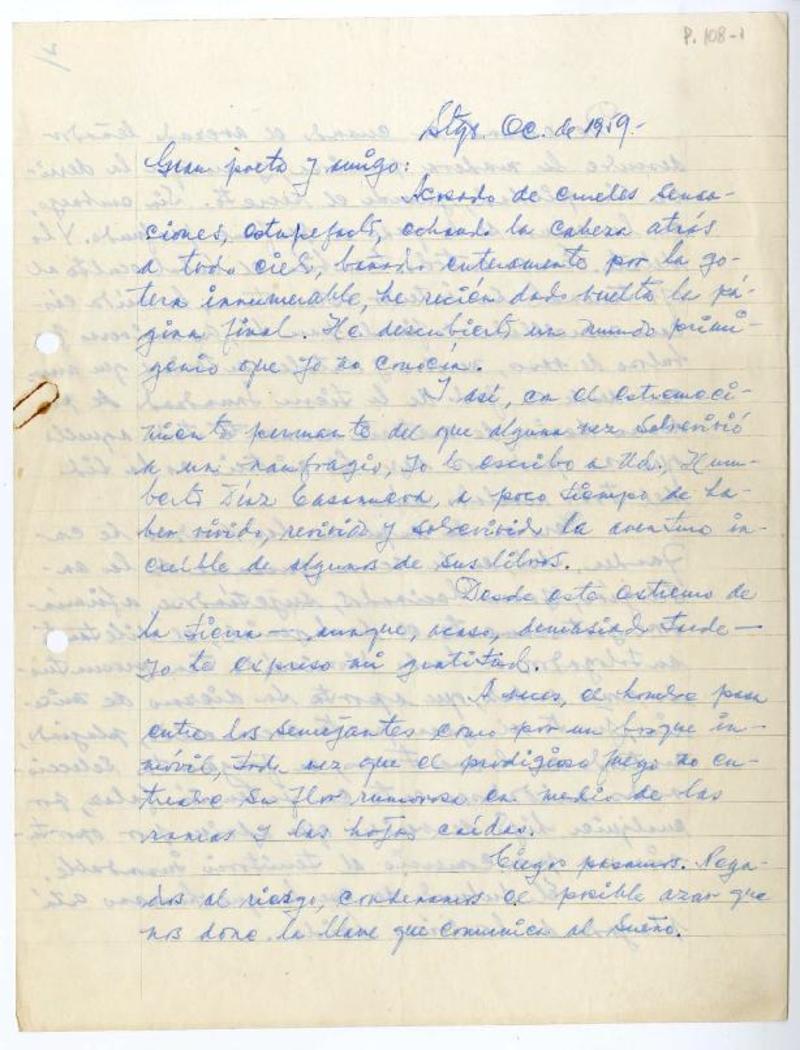 P. 108-1
Stgo. Oc. de 1959.-
Gran poeta y amigo:
Acosado de crueles sensa-
ciones, estupefacto, echando la cabeza atrás
a todo cielo, bañado enteramente por la go-
tera innumerable, he recién dado vuelta la pá-
gina final. He descubierto un mundo primi-
genio que yo no conocía.
Y así, en el estremeci-
miento permanente del que alguna vez sobrevivió
a un naufragio, yo le escribo a Ud., Hum-
berto Díaz Casanueva, a poco tiempo de ha-
ber vivido, revivido y sobrevivido la aventura in-
creíble de algunos de sus libros.
Desde este extremo de
la tierra — aunque, acaso, demasiado tarde —
yo le expreso mi gratitud.
A veces, el hombre pasa
entre los semejantes como por un bosque in-
móvil, toda vez que el prodigioso fuego no en-
treabre su flor rumorosa en medio de las
ramas y las hojas caídas.
Ciegos pasamos. Nega-
dos al riesgo, condenamos el posible azar que
nos done la llave que comunica al sueño.